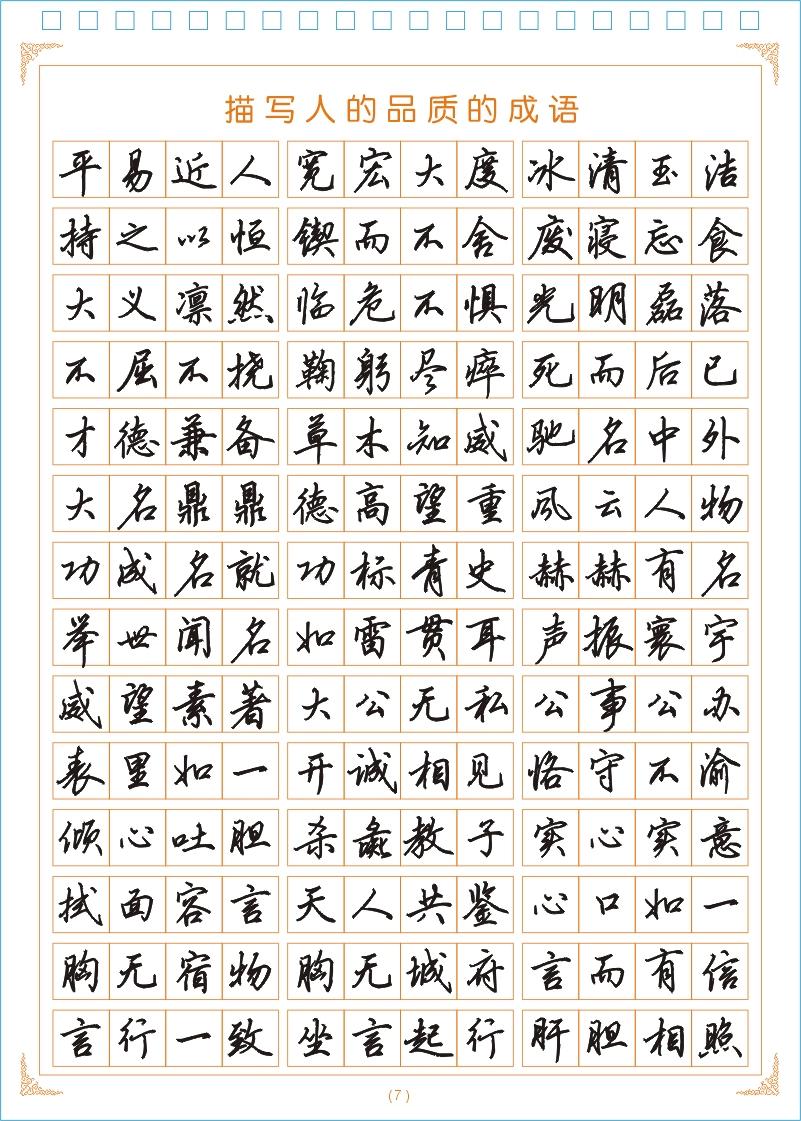 描写人的品质的成语
平易近人 宽宏大度 冰清玉洁
持之以恒 锲而不舍 废寝忘食
大义凛然 临危不惧 光明磊落
不屈不挠 鞠躬尽瘁 死而后已
才德兼备 草木知威 驰名中外
大名鼎鼎 德高望重 风云人物
功成名就 功标青史 赫赫有名
举世闻名 如雷贯耳 声振寰宇
威望素著 大公无私 公事公办
表里如一 开诚相见 恪守不渝
倾心吐胆 杀彘教子 实心实意
拭面容言 天人共鉴 心口如一
胸无宿物 胸无城府 言而有信
言行一致 坐言起行 肝胆相照
(7)